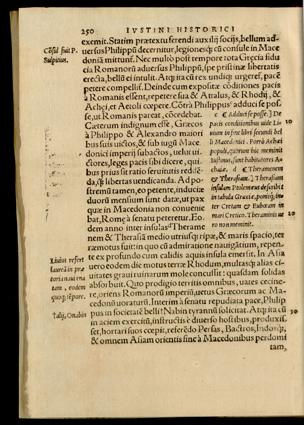 250 IVSTINI HISTORICI
exemit. Statim prætextu ferendi auxilij socijs, bellum ad-
uersus Philippũ decernitur, legionesq́; cũ consule in Mace
doniã mittunt. Nec multò pòst tempore tota Grecia fidu
cia Romanorũ aduersus Philippũ, spe pristinæ libertatis
erecta, bellũ ei intulit. Atq; ita cũ rex undiq; urgeret, pacẽ
petere compellit. Deinde cum expositæ cõditiones pacis
à Romanis essent, repetere sua & Attalus, & Rhodij, &
Achęi, et Aetoli cœpere. Cõtrà Philippus adduci se pos=
se, ut Romanis pareat, cõcedebat.
Cæterum indignum esse, Græcos
à Philippo & Alexandro maiori
bus suis uictos, & sub iugũ Mace-
donici imperij subactos, uelut ui-
ctores, leges pacis sibi dicere, qui-
bus prius sit ratio seruitutis redde-
da, q̃ libertas uendicanda. Ad po-
stremũ tamen, eo petente, induciæ
duorũ mensium sunt datæ, ut pax
quæ in Macedonia non conuenie
bat, Romę à senatu peteretur. Eo-
dem anno inter insulas Theramẽ
nem & Therasiã medio utriusq; ripæ, & maris spacio, ter
ræmotus fuit: in quo cũ admiratione nauigantium, repen-
te ex profundo cum calidis aquis insula emersit. In Asia
uero eodem die motus terræ Rhodum, multasq́; alias ci-
uitates graui ruinarum mole concussit: quasdam solidas
absorbuit. Quo prodigio territis omnibus, uates cecine-
re, oriens Romanorũ imperiũ, uetus Græcorum ac Ma-
cedonũ uoraturũ. Interim à senatu repudiata pace, Philip
pus in societatẽ belli Nabin tyrannũ sollicitat. Atq; ita cũ
in aciem exercitũ, instructis è diuerso hostibus, produxis
set, hortari suos cœpit, referẽdo Persas, Bactros, Indosq́;
& omnem Asiam orientis finẽ à Macedonibus perdomi
tam,
Cõsul fuit P.
Sulpicius.
c Adduci se posse.] De
20
d Theramenem
& Therasiam.] Therasiam
insulam Ptolemæus describit
in tabula Græciæ ponit, in-
ter Cretam & Eubœam in
mari Cretico. Theraminis ue
ro non meminit.
Liuius refert
30